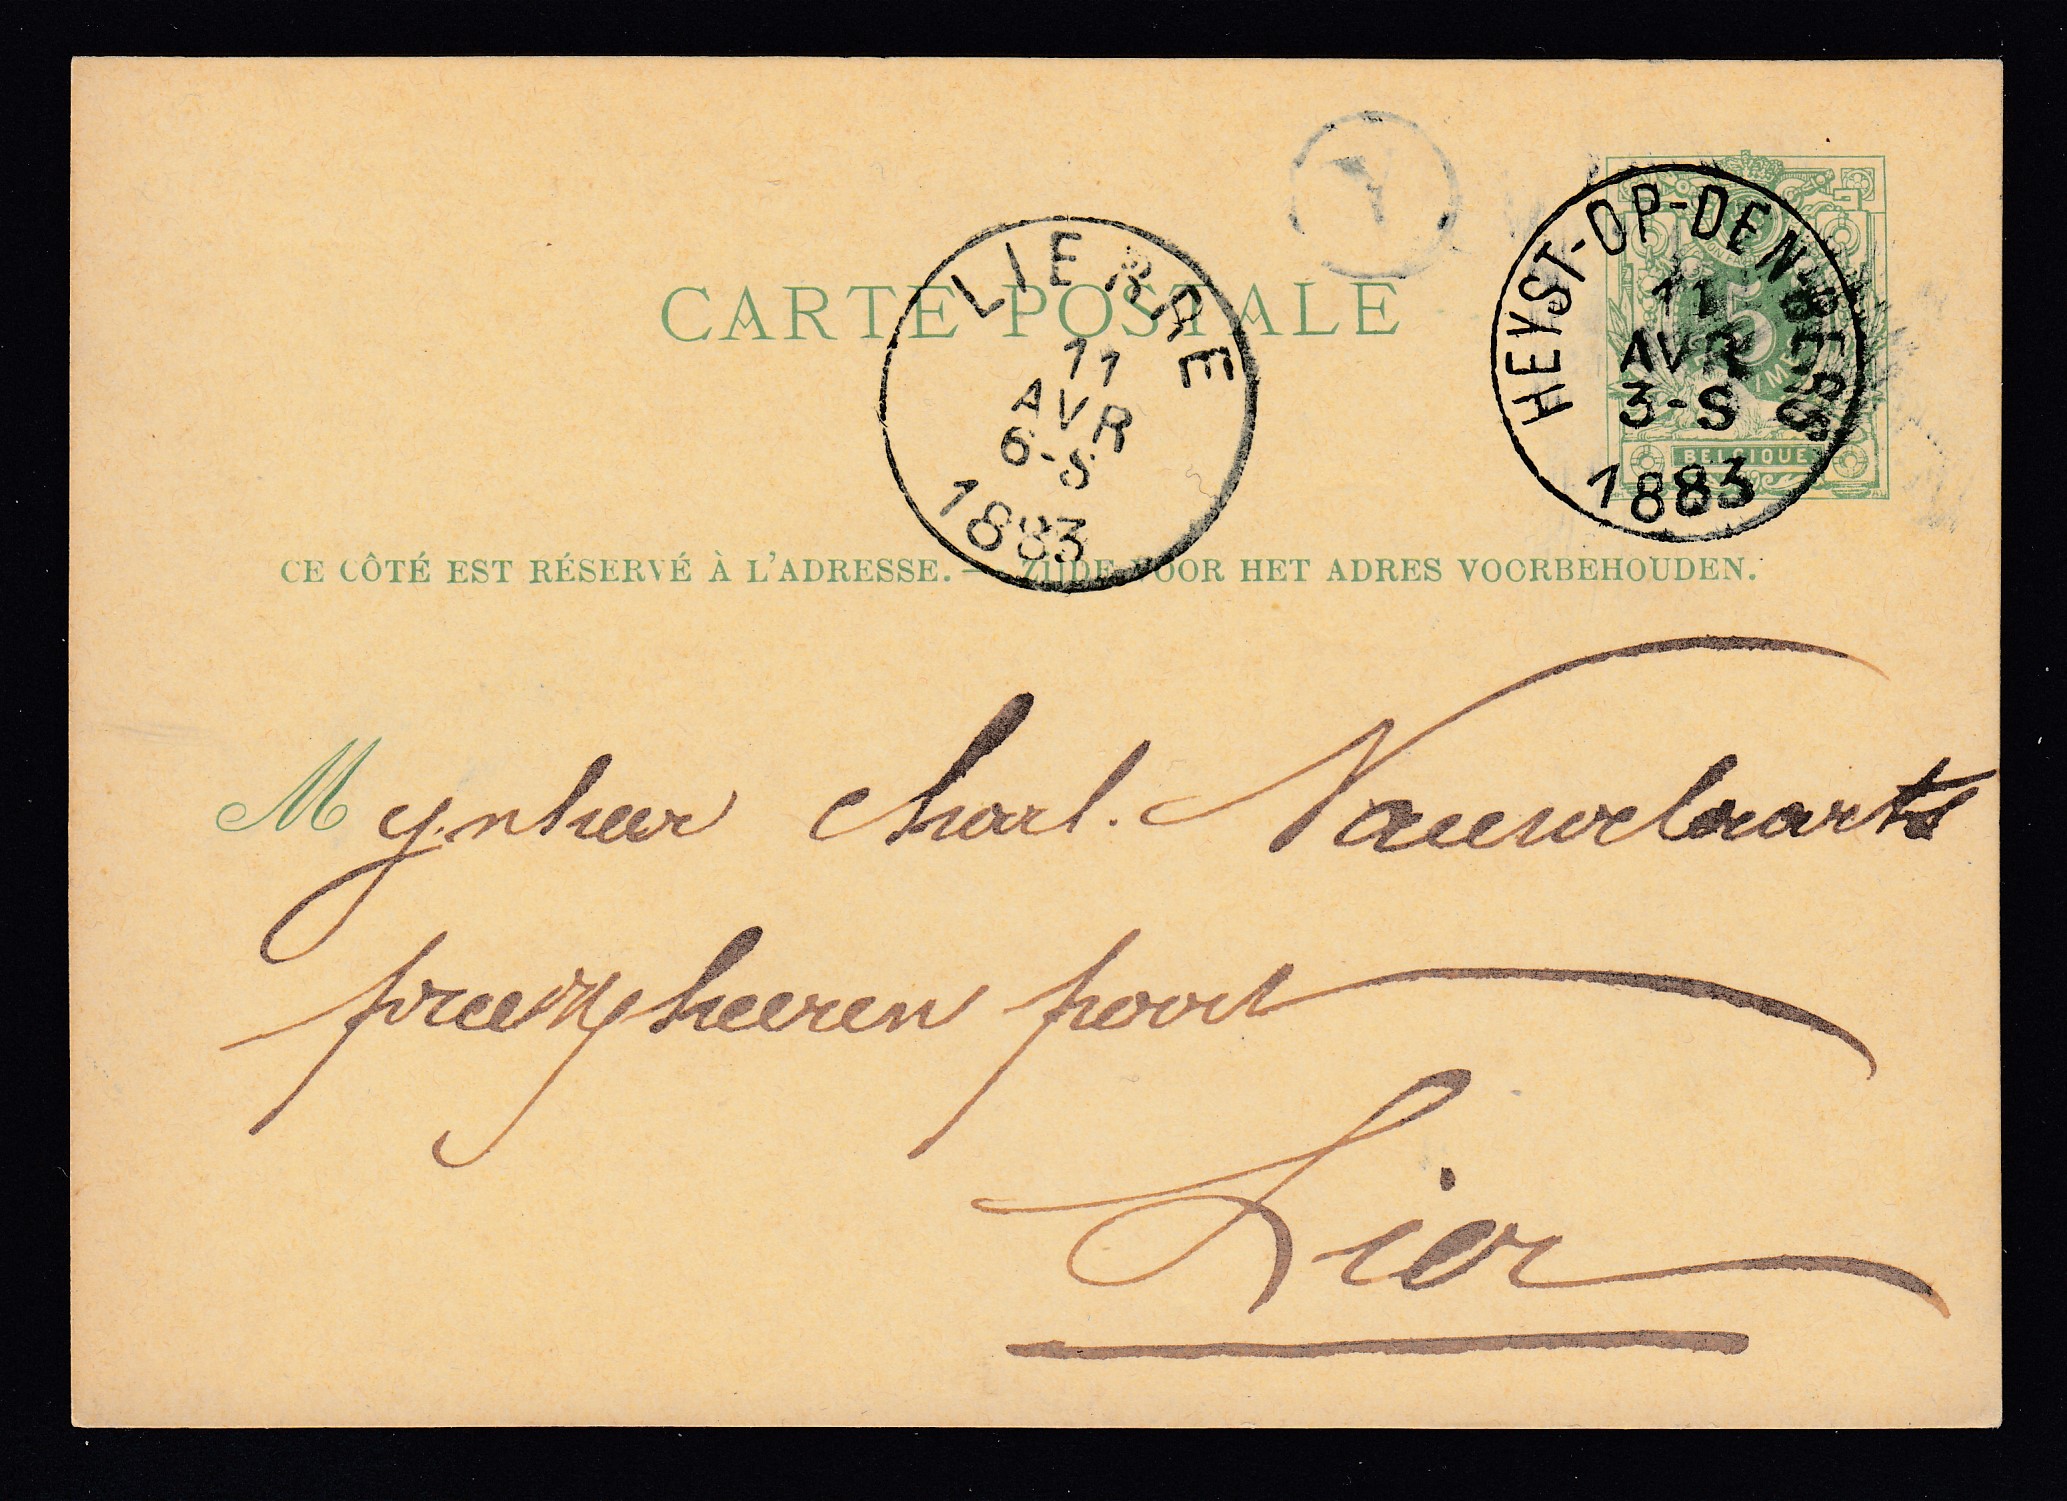 CARTE POSTALE
LIERRE
11
AVR
6-S
1883
HEYST-OP-DEN-BERG
11
AVR
3-S
1883
5
BELGIQUE
CE CÔTÉ EST RÉSERVÉ À L'ADRESSE. — ZIJDE VOOR HET ADRES VOORBEHOUDEN.
Mynheer Charl. Nauwelaarts
heeren poort
Lier